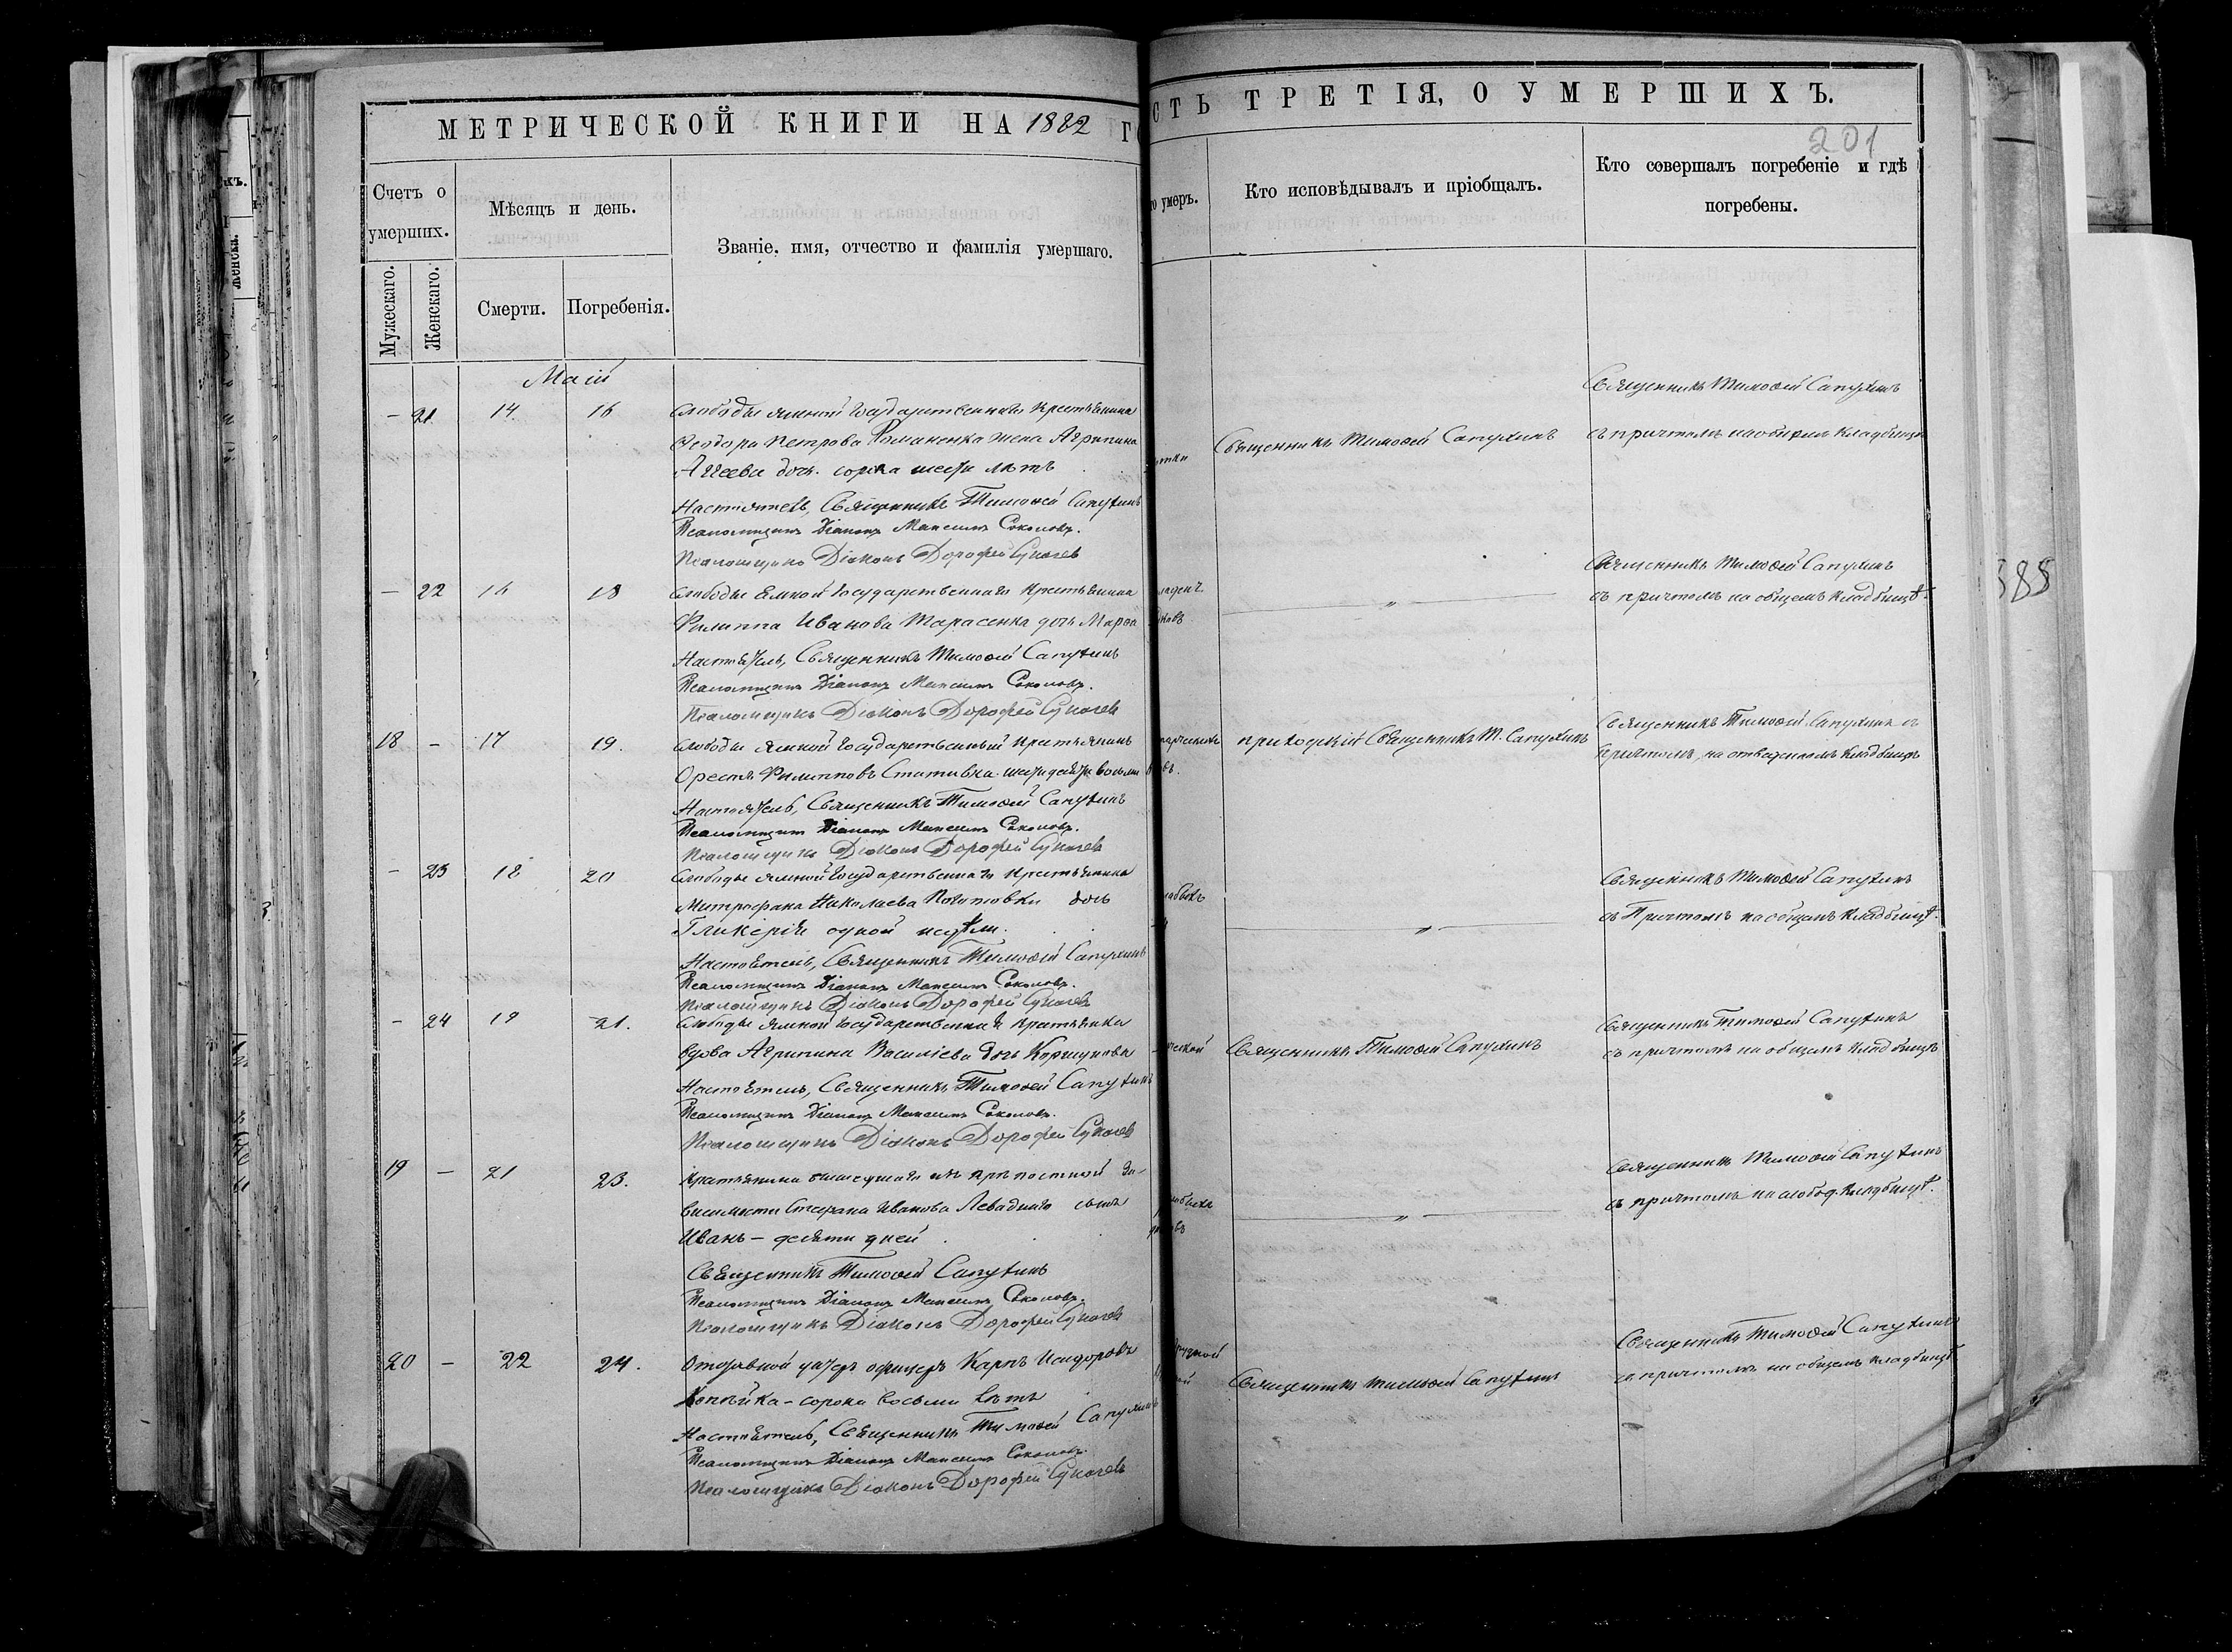 МЕТРИЧЕСКОЙ КНИГИ НА 1882 ГО
СТЬ ТРЕТІЯ, О УМЕРШИХЪ.
201
Счетъ о умершихъ.
Мужескаго.
Женскаго.
Мѣсяцъ и день.
Смерти.
Погребенія.
Званіе, имя, отчество и фамилія умершаго.
о умеръ.
Кто исповѣдывалъ и пріобщалъ.
Кто совершалъ погребеніе и гдѣ погребены.
Маій
– 21 14 16
Слободы Ямной Государственнаго Крестьянина
Ѳеодора Петрова Романенка жена Агрипина
Агеева дочь. сорока шести лѣтъ
Настоятель, Священникъ Тимоѳей Сапухинъ
Псаломщикъ Діаконъ Максимъ Соколовъ.
Псаломщикъ Діаконъ Дорофей
Священникъ Тимоѳей Сапухинъ
Священникъ Тимоѳей Сапухинъ
съ причтомъ на общемъ кладбищѣ
– 22 16 18
Слободы Ямной Государственнаго Крестьянина
Филиппа Иванова Тарасенка дочь Марѳа
Настоятель, Священникъ Тимоѳей Сапухинъ
Псаломщикъ Діаконъ Максимъ Соколовъ.
Псаломщикъ Діаконъ Дорофей
– „ –
Священникъ Тимоѳей Сапухинъ
съ причтомъ на общемъ кладбищѣ.
18 – 17 19.
Слободы Ямной Государственный Крестьянинъ
Орестъ Филипповъ Стативка шестидесяти восьми
Настоятель, Священникъ Тимоѳей Сапухинъ
Псаломщикъ Діаконъ Максимъ Соколовъ.
Псаломщикъ Діаконъ Дорофей
приходскій Священникъ Т. Сапухинъ
Священникъ Тимоѳей Сапухинъ съ
причтомъ, на кладбищѣ
– 23 18 20
Слободы Ямной Государственнаго Крестьянина
Митрофана Николаева дочь
Гликерія одной недѣли.
Настоятель, Священникъ Тимоѳей Сапухинъ
Псаломщикъ Діаконъ Максимъ Соколовъ.
Псаломщикъ Діаконъ Дорофей
– „ –
Священникъ Тимоѳей Сапухинъ
съ Причтомъ на общемъ кладбищѣ.
– 24 19 21.
Слободы Ямной Государственная Крестьянка
вдова Агрипина Василіева дочь Коршунова
Настоятель, Священникъ Тимоѳей Сапухинъ
Псаломщикъ Діаконъ Максимъ Соколовъ.
Псаломщикъ Діаконъ Дорофей
Священникъ Тимоѳей Сапухинъ
Священникъ Тимоѳей Сапухинъ
съ причтомъ на общемъ кладбищѣ
19 – 21 23.
Крестьянина вышедшаго изъ крѣпостной за-
висимости Стефана Иванова Левадняго сынъ
Иванъ – десяти дней
Священникъ Тимоѳей Сапухинъ
Псаломщикъ Діаконъ Максимъ Соколовъ.
Псаломщикъ Діаконъ Дорофей
– „ –
Священникъ Тимоѳей Сапухинъ
съ причтомъ на слобод. кладбищѣ.
20 – 22 24.
Отставной унтеръ офицеръ Карпъ Исидоровъ
Копѣйка – сорока восьми лѣтъ
Настоятель, Священникъ Тимоѳей Сапухинъ
Псаломщикъ Діаконъ Максимъ Соколовъ.
Псаломщикъ Діаконъ Дорофей
Священникъ Тимоѳей Сапухинъ
Священникъ Тимоѳей Сапухинъ
съ причтомъ на общемъ кладбищѣ